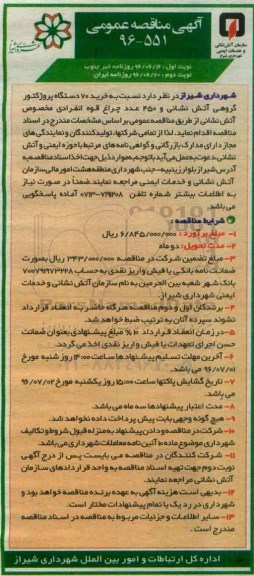 آگهی مناقصه عمومی
۹۶-۵۵۱
سازمان آتش نشانی
و خدمات ایمنی
نوبت اول: ۹۶/۰۶/۱۶ روزنامه خبر جنوب
نوبت دوم: ۹۶/۰۶/۲۰ روزنامه ایران
شهرداری شیراز در نظر دارد نسبت به خرید ۷۰ دستگاه پروژکتور
گروهی آتش نشانی و ۴۵۰ عدد چراغ قوه انفرادی مخصوص
آتش نشانی از طریق مناقصه عمومی بر اساس مشخصات مندرج در اسناد
مناقصه اقدام نماید. لذا از تمامی شرکتها، تولیدکنندگان و نمایندگی های
مجاز دارای مدارک بازرگانی و گواهی نامه های مرتبط با حوزه ایمنی و آتش
نشانی، دعوت به عمل می آید با توجه به موارد ذیل جهت اخذ اسناد مناقصه به
آدرس شیراز بلوار زینبیه - جنب شهرداری منطقه هشت امور مالی سازمان
آتش نشانی و خدمات ایمنی مراجعه نمایند. ضمناً در صورت نیاز
به اطلاعات بیشتر شماره تلفن آماده پاسخگویی
می باشد.
شرایط مناقصه:
۱- مبلغ برآورد: ۶/۸۴۵/۰۰۰/۰۰۰ ریال
۲- مدت تحویل: دو ماه
۳- مبلغ تضمین شرکت در مناقصه ۳۴۳/۰۰۰/۰۰۰ ریال بصورت
ضمانت نامه بانکی یا فیش واریز نقدی به حساب
بانک شهر شعبه بین الحرمین به نام سازمان آتش نشانی و خدمات
ایمنی شهرداری شیراز.
۴- برندگان اول و دوم مناقصه هرگاه حاضر به انعقاد قرارداد
نشوند سپرده آنان به ترتیب ضبط خواهد شد.
۵- در زمان انعقاد قرارداد ۱۰٪ مبلغ پیشنهادی بعنوان ضمانت
حسن اجرای تعهدات یا فیش واریز نقدی اخذ می گردد.
۶- آخرین مهلت تسلیم پیشنهادها ساعت ۱۴:۰۰ روز شنبه مورخ
۹۶/۰۷/۰۱ می باشد.
۷- تاریخ گشایش پاکتها ساعت ۱۵:۰۰ روز یکشنبه مورخ ۹۶/۰۷/۰۲
می باشد.
۸- مدت اعتبار پیشنهادها سه ماه می باشد.
۹- هیچ گونه وجهی بابت پیش پرداخت داده نخواهد شد.
۱۰- شرکت در مناقصه و دادن پیشنهاد به منزله قبول شروط و تکالیف
شهرداری موضوع ماده ۱۰ آئین نامه معاملات شهرداری می باشد.
۱۱- شرکت کنندگان در مناقصه می بایست پس از درج آگهی
نوبت دوم جهت تهیه اسناد مناقصه به واحد قراردادهای سازمان
آتش نشانی مراجعه نمایند.
۱۲- بدیهی است هزینه آگهی به عهده برنده مناقصه خواهد بود و
شهرداری در رد یک یا تمام پیشنهادات مختار است.
۱۳- سایر اطلاعات و جزئیات مربوط به مناقصه در اسناد مناقصه
مندرج است.
اداره کل ارتباطات و امور بین الملل شهرداری شیراز